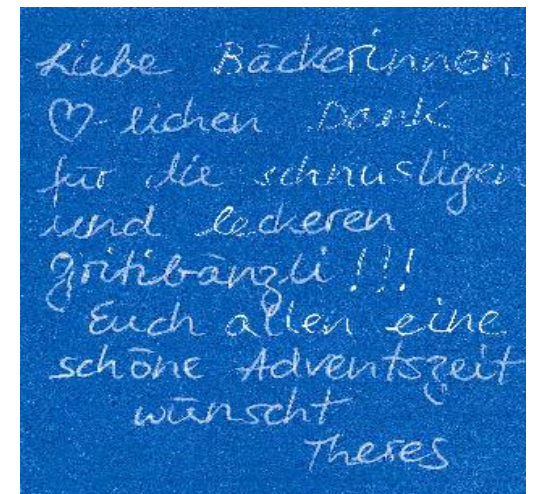 Liebe Bäckerinnen
♡-lichen Dank
für die schnusligen
und leckeren
Gritibänzli!!!
Euch allen eine
schöne Adventszeit
wünscht
Theres